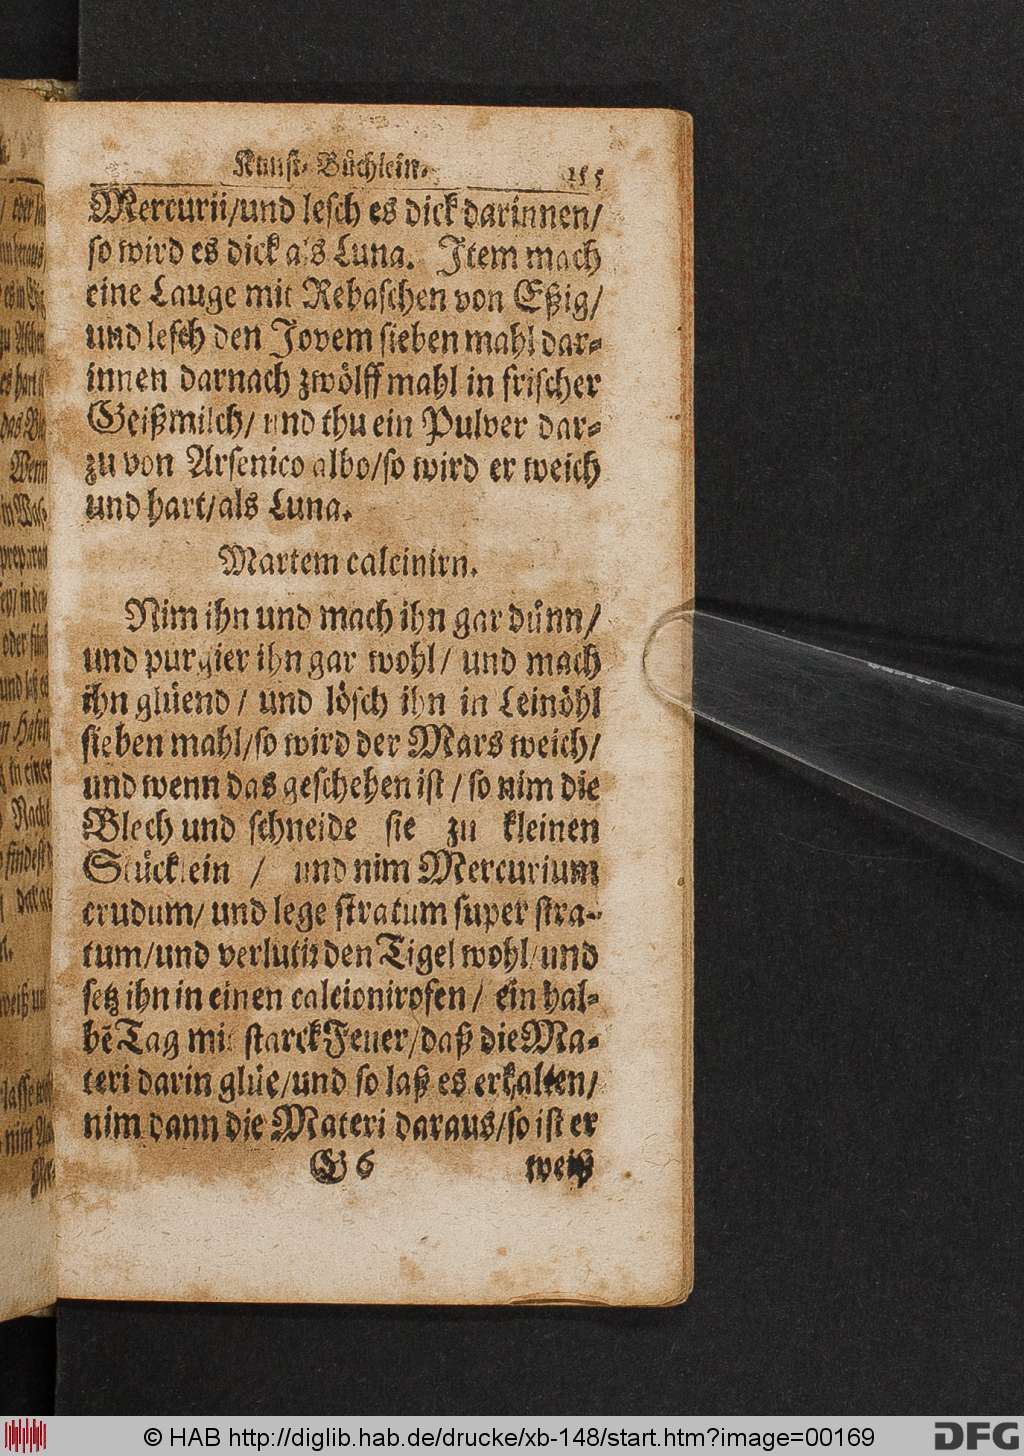 Kunst-Büchlein. 155
Mercurii/und lesch es dick darinnen/
so wird es dick als Luna. Item mach
eine Lauge mit Rebaschen von Eßig/
und lesch den Jovem sieben mahl dar-
innen darnach zwölff mahl in frischer
Geißmilch/ und thu ein Pulver dar-
zu von Arsenico albo/so wird er weich
und hart/als Luna.
Martem calcinirn.
Nim ihn und mach ihn gar dünn/
und purgier ihn gar wohl/ und mach
ihn glüend / und lösch ihn in Leinöhl
sieben mahl/so wird der Mars weich/
und wenn das geschehen ist / so nim die
Blech und schneide sie zu kleinen
Stücklein / und nim Mercurium
crudum/ und lege stratum super stra-
tum/und verlutir den Tigel wohl/und
setz ihn in einen calcionirofen / ein hal-
bẽ Tag mit starck Feuer/daß die Ma-
teri darin glüe/und so laß es erkalten/
nim dann die Materi daraus/so ist er
G 6 weiß
© HAB http://diglib.hab.de/drucke/xb-148/start.htm?image=00169
DFG